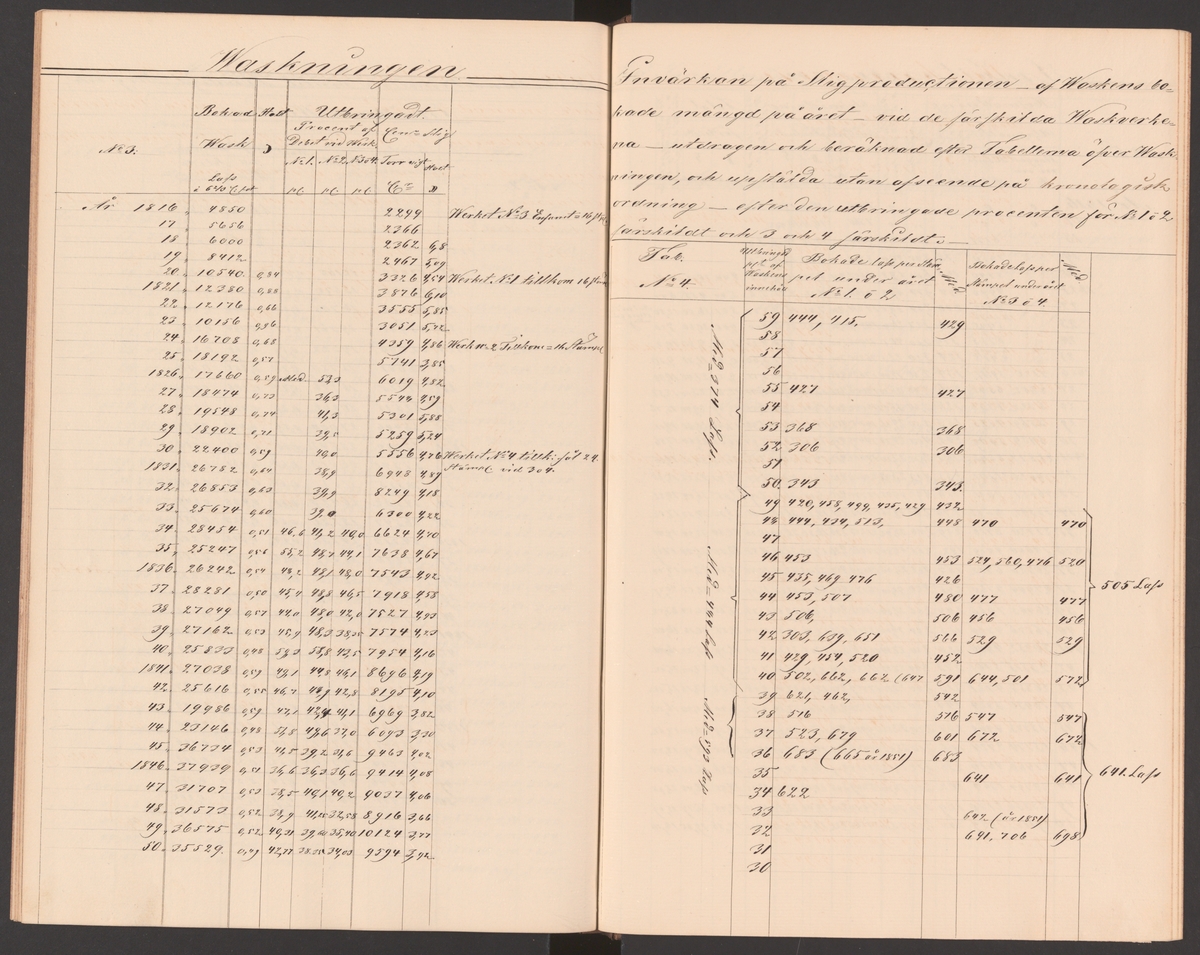 Waskningen
Bokad Halt Utbringadt.
Procent af
Debet vid Wärk
Cent. Slig
No 3. Wask
No 1. No 2. No 3 o 4. Torr vigt Halt
Lass
pC. pC. pC. Ctr
År 1816. 4850 2299 Werket No 3 Ensamt = 16 st
17. 5656 2366
18. 6000 2362 6,8
19. 8412 2467 5,09
20. 10540. 0,84 3326 4,54 Werket No 1 tillkom 16 st
1821. 12380 0,88 3876 6,10
22. 12176 0,66 3555 5,85
23. 10156 0,86 3051 5,72
24. 16708 0,68 4359 4,86 Werk No 2 Tillkom =
25. 18192 0,57 5741 3,85
1826. 17660 0,59 Med. 53,3 6019 4,52
27. 18474 0,73 36,3 5544 4,59
28. 19548 0,74 41,3 5301 5,88
29. 18902 0,71 39,0 5259 5,24
30. 22400 0,59 40,0 5556 4,76 Werket No 4 tillk:
1831. 26752 0,64 38,9 6948 4,89 Stämpl vid 3 o 4.
32. 26853 0,63 39,9 8249 4,18
33. 25674 0,60 39,0 6300 4,22
34. 28454 0,51 46,6 41,2 40,0 6624 4,70
35. 25247 0,56 55,2 48,7 44,1 7638 4,67
1836. 26242 0,54 48,2 48,1 48,0 7543 4,92
37. 28281 0,50 45,4 48,8 46,5 7918 4,53
38. 27049 0,57 44,0 48,0 42,0 7527 4,93
39. 27162 0,53 45,9 48,3 38,35 7574 4,23
40. 25833 0,48 58,3 53,8 43,5 7954 4,16
1841. 27038 0,59 49,1 44,8 46,1 8696 4,19
42. 25616 0,55 46,7 44,9 42,8 8195 4,10
43. 19986 0,59 47,1 42,4 41,1 6969 3,82
44. 23146 0,48 37,8 42,6 37,0 6093 3,30
45. 36734 0,53 41,5 39,2 31,6 9463 4,02
1846. 37939 0,51 36,6 36,3 36,6 9414 4,08
47. 31707 0,53 38,5 40,1 40,2 9037 4,06
48. 31573 0,52 38,9 41,25 32,58 8916 3,66
49. 36575 0,52 40,31 39,60 35,40 10124 3,77
50. 35529. 0,49 42,77 38,25 34,03 9594 3,92
Invärkan på Sligproductionen – af Waskens bo-
kade mängd på året – vid de särskilda Waskverke-
na – utdragen och beräknad efter Tabellerna öfver Wask-
ningen, och upstälda utan afseende på kronologisk
ordning – efter den utbringade procenten för No 1 o 2
särskildt och 3 och 4 särskildt. –
Tab. Utbringat Bokade lass per Stäm- Med Bokade Lass per Med
No 4. pC. af Waskens innehåll pet under året Stämpet under året
No 1. o 2 No 3 o 4.
59 444, 415. 429
58
57
56
55 427 427
54
53 368 368
52 306 306
51
50 343 343.
49 420, 458, 499, 435, 429 432
48 444, 434, 513, 448 470 470
47
46 453 453 524, 560, 476 520
45 435, 469, 476 426
44 453, 507 480 477 477
43 506, 506 456 456
42 303, 639, 651 566 529 529
41 429, 454, 520 452
40 502, 662, 662 (647 591 644, 501 572
39 621, 462, 542
38 516 516 547 547
37 523, 679 601 672 672
36 683 (665 år 1851) 683
35 641 641
34 622
33 642 (år 1851)
32 641, 706 698
31
30
Med = 374 Lass.
Med = 444 Lass
Med = 593 Lass
505 Lass
641 Lass